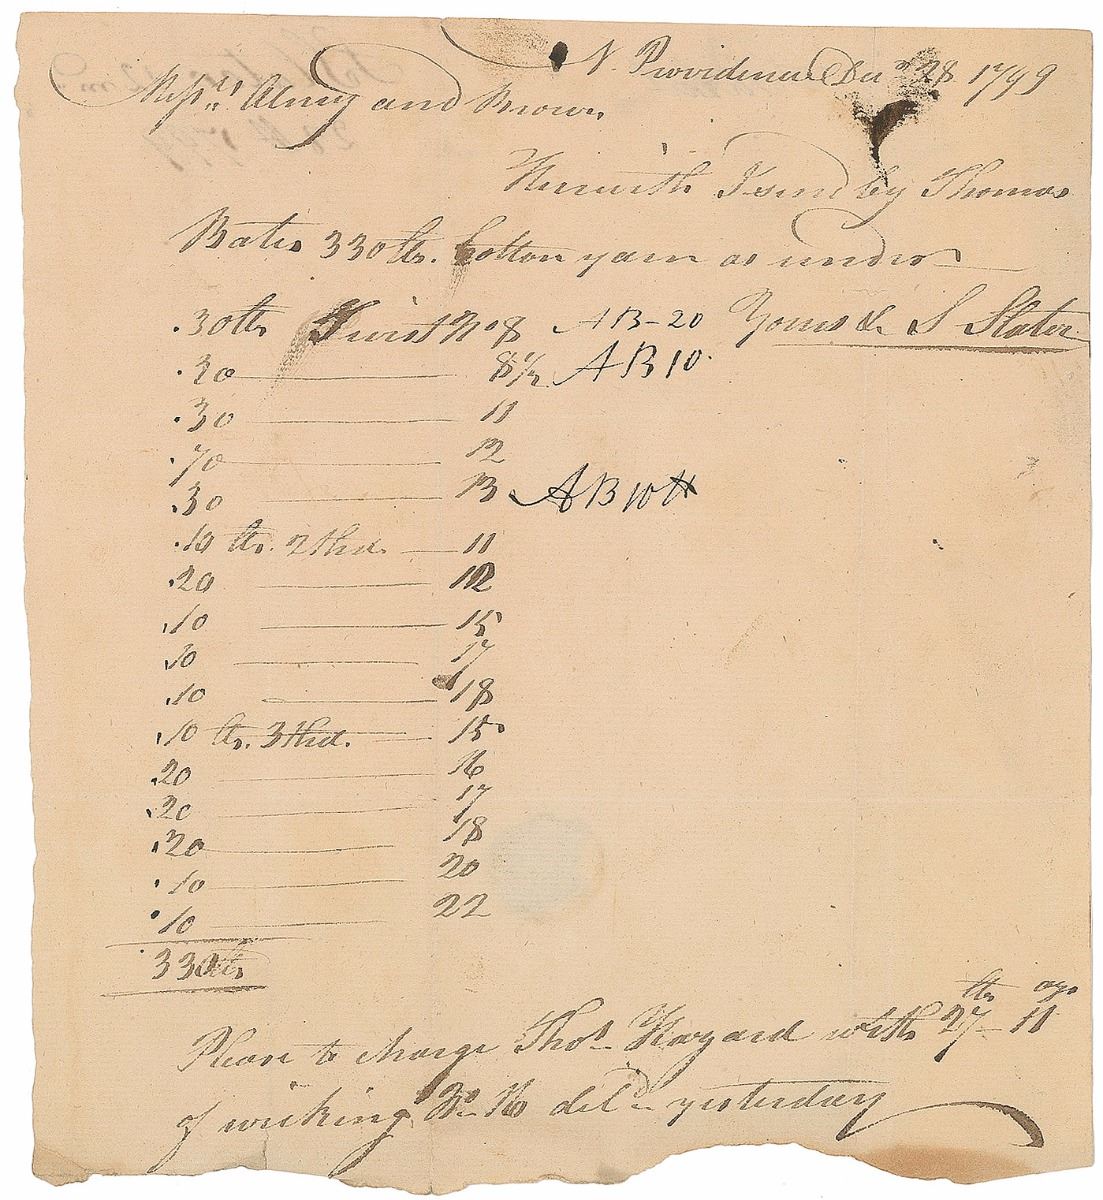 N Providence Decr 28 1799
Messrs Almy and Brown
Herewith I send by Thomas
Bates 330 lbs. Cotton yarn as under
.30 lbs Twist No 8 AB-20 Yours &c S Slater
.20 — 8½ AB 10
.30 — 11
.70 — 12
.30 — 13 AB 10 H
.10 lbs. 2 thd. — 11
.20 — 12
.10 — 15
.10 — 17
.10 — 18
.10 lbs. 3 thd. — 15
.20 — 16
.20 — 17
.20 — 18
.10 — 20
.10 — 22
330 lbs
lbs ozs
Please to charge Thos Hazard with 27 - 11
of wicking No 16 deld yesterday